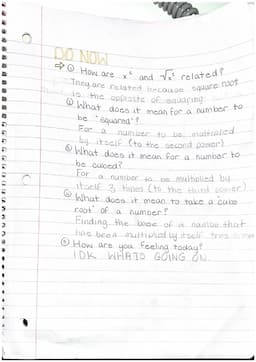 DO NOW
① How are x² and √x² related?
They are related because square root
is the opposite of squaring.
② What does it mean for a number to
be "squared"?
For a number to be multiplied
by itself (to the second power)
③ What does it mean for a number to
be cubed?
For a number to be multiplied by
itself 3 times (to the third power)
④ What does it mean to take a "cube
root" of a number?
Finding the base of a number that
has been multiplied by itself
⑤ How are you feeling today?
IDK WHATS GOING ON.